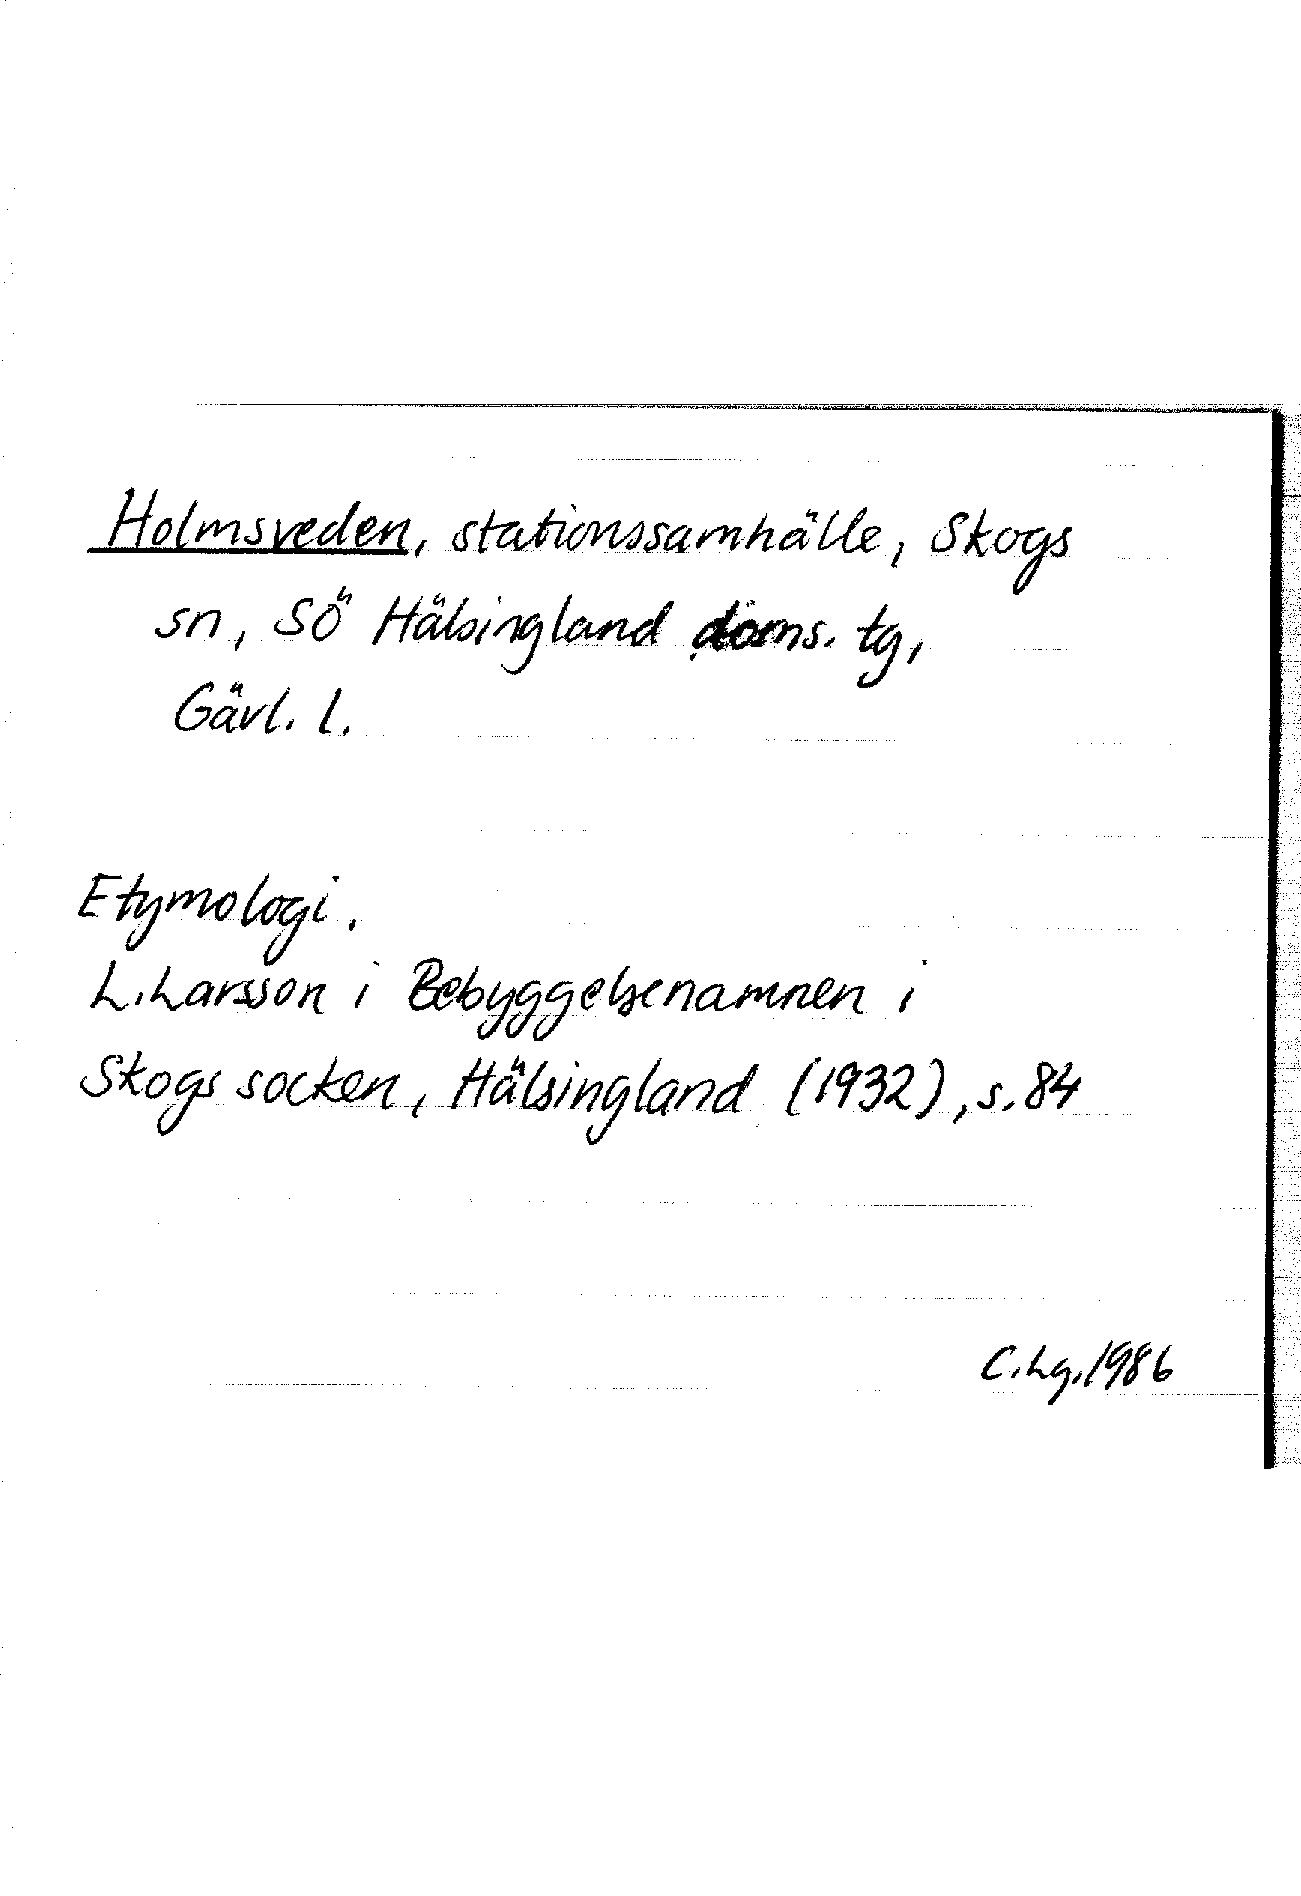 Holmsveden, stationssamhälle, Skogs
sn, SÖ Hälsingland doms. tg,
Gävl. l.
Etymologi.
L. Larsson i Bebyggelsenamnen i
Skogs socken, Hälsingland (1932), s. 84
C. Lg. 1986